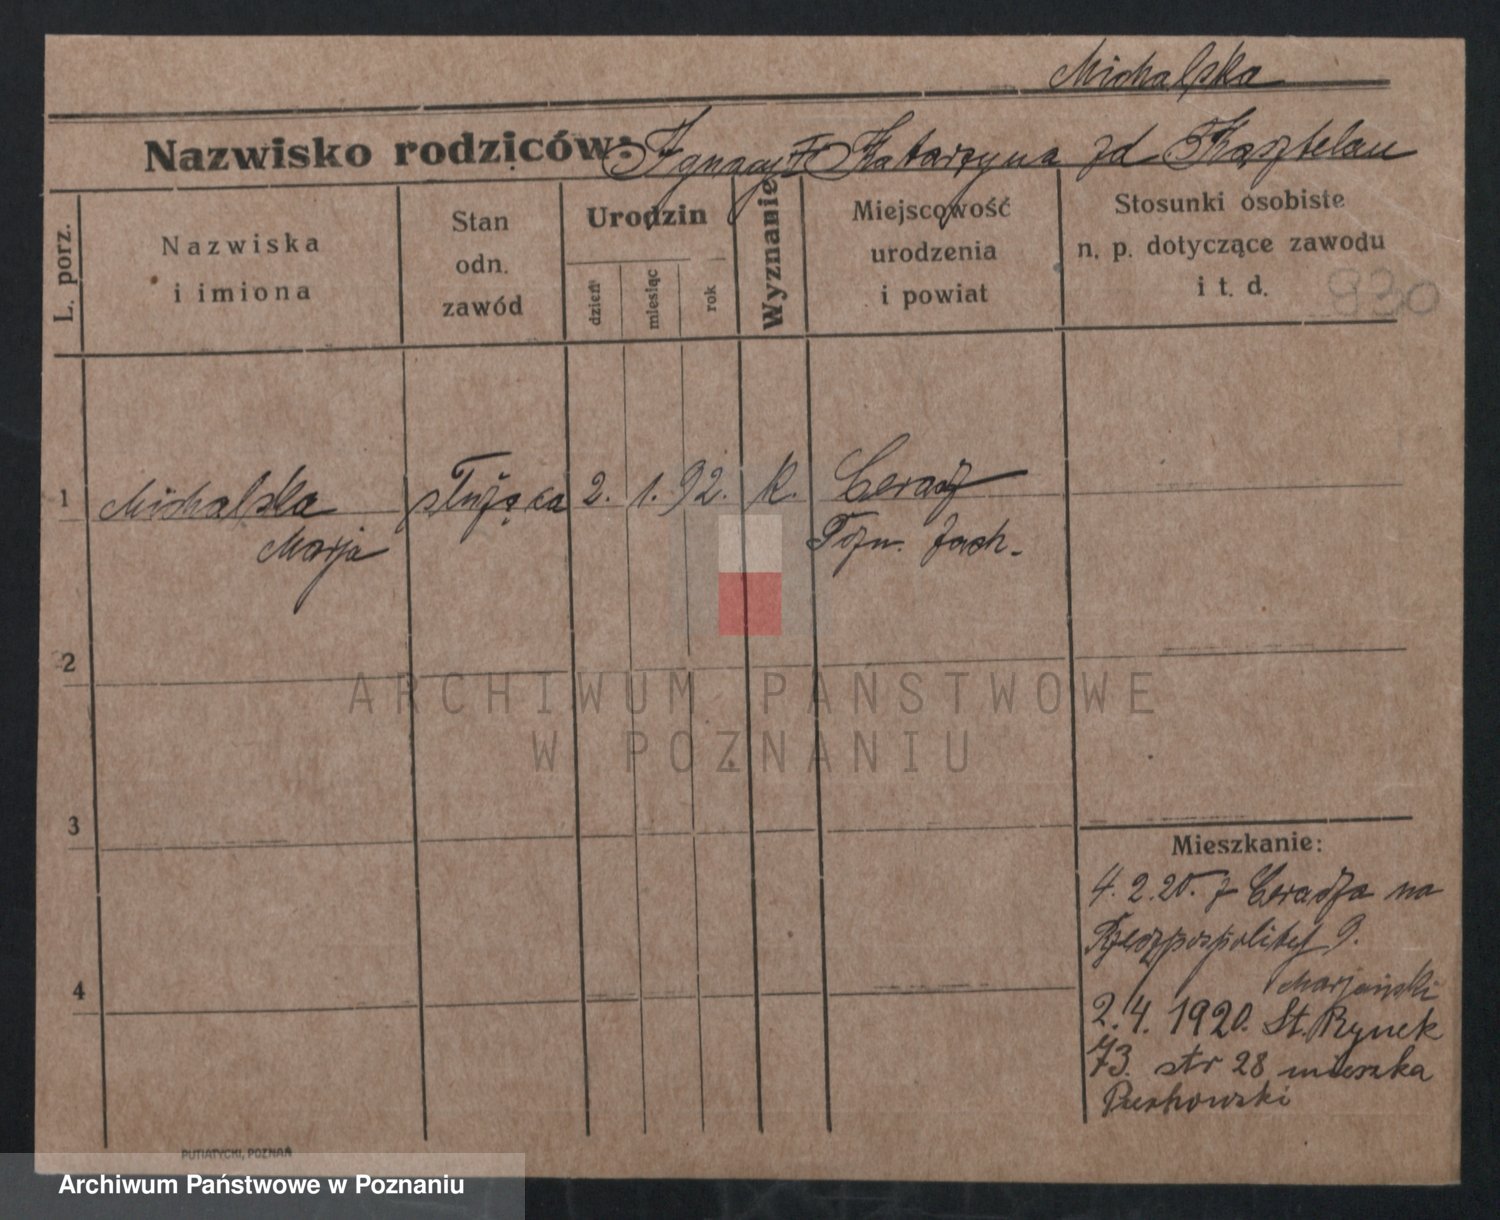 Michalska
Nazwisko rodziców: Ignacy i Katarzyna zd Kasztelan
L. porz.
Nazwiska
i imiona
Stan
odn.
zawód
Urodzin
dzień
miesiąc
rok
Wyznanie
Miejscowość
urodzenia
i powiat
Stosunki osobiste
n. p. dotyczące zawodu
i t. d.
930
1 Michalska służąca 2. 1. 92. k. Ceradz
Marja Pozn. Zach.
2
3
4
Mieszkanie:
4.2.20. z Ceradza na
Rzeczpospolitej 9.
Marjański
2.4. 1920. St. Rynek
73. str 28 mieszka
PUTIATYCKI, POZNAŃ
ARCHIWUM PAŃSTWOWE
W POZNANIU
Archiwum Państwowe w Poznaniu